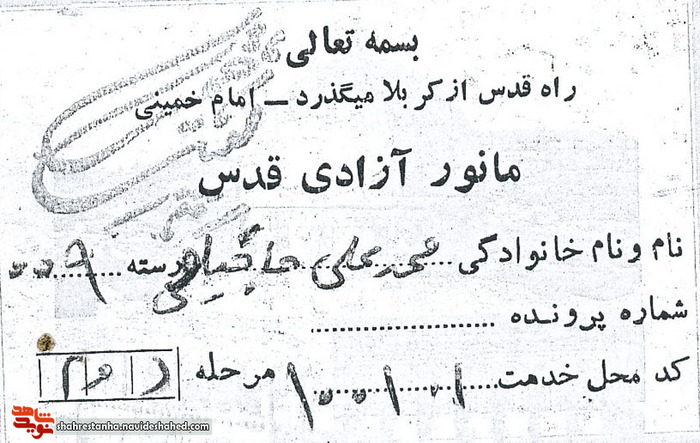 بسمه تعالی
راه قدس از کربلا میگذرد _ امام خمینی
مانور آزادی قدس
نام و نام خانوادگی محمدعلی رسته
شماره پرونده
کد محل خدمت ۱۰۰۱۰۱ مرحله دوم
نوید شاهد
shahrestanha.navideshahed.com